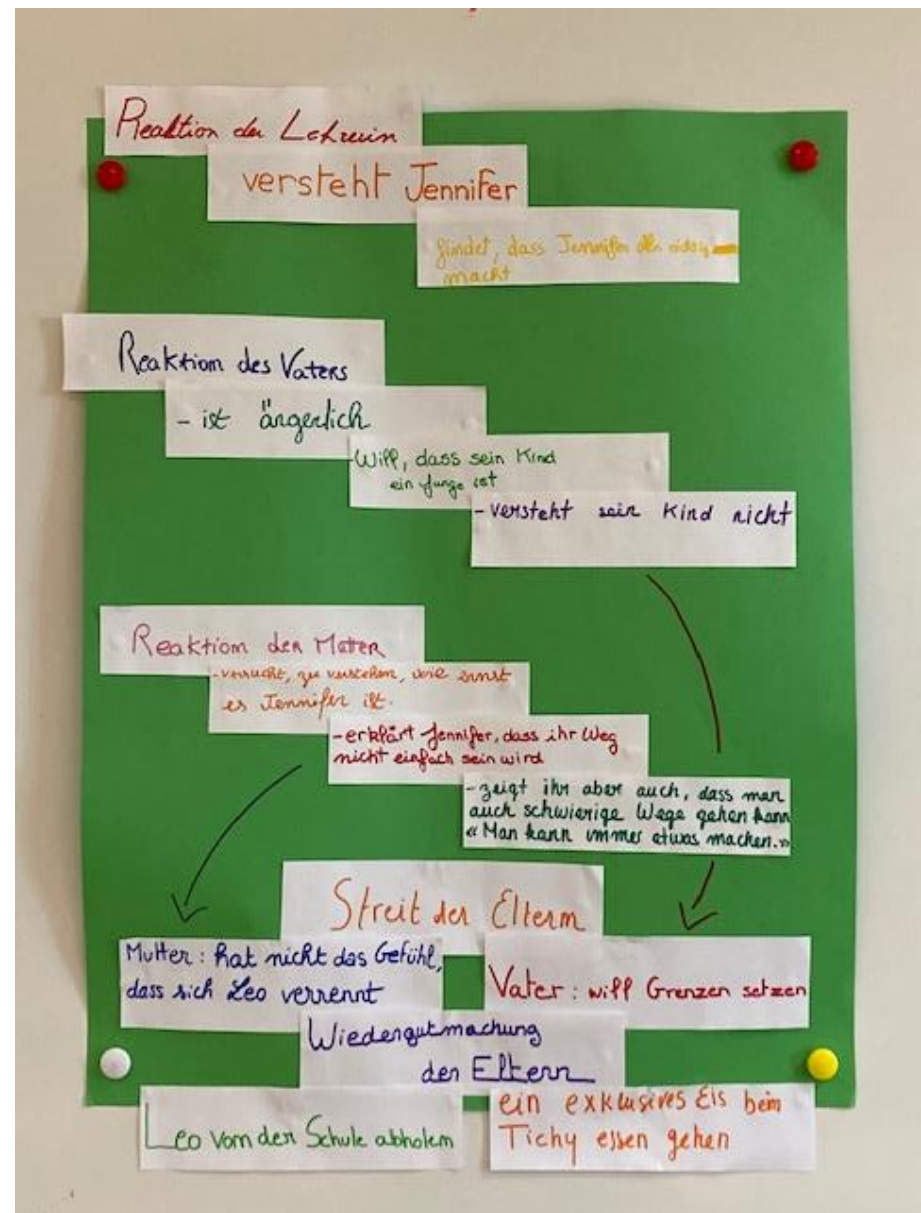 Reaktion der Lehrerin
versteht Jennifer
findet, dass Jennifer alles richtig
macht
Reaktion des Vaters
- ist ärgerlich
- Will, dass sein Kind
ein Junge ist
- versteht sein Kind nicht
Reaktion der Mutter
- versucht, zu verstehen, wie ernst
es Jennifer ist.
- erklärt Jennifer, dass ihr Weg
nicht einfach sein wird
- zeigt ihr aber auch, dass man
auch schwierige Wege gehen kann
« Man kann immer etwas machen.»
Streit der Eltern
Mutter : hat nicht das Gefühl,
dass sich Leo verrennt
Vater : will Grenzen setzen
Wiedergutmachung
der Eltern
Leo von der Schule abholen
ein exklusives Eis beim
Tichy essen gehen